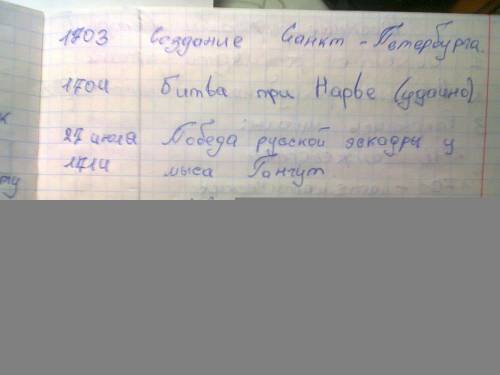 1703 Создание Санкт-Петербурга.
1704 Битва при Нарве (удачно)
27 июля Победа русской эскадры у
1714 мыса Гангут